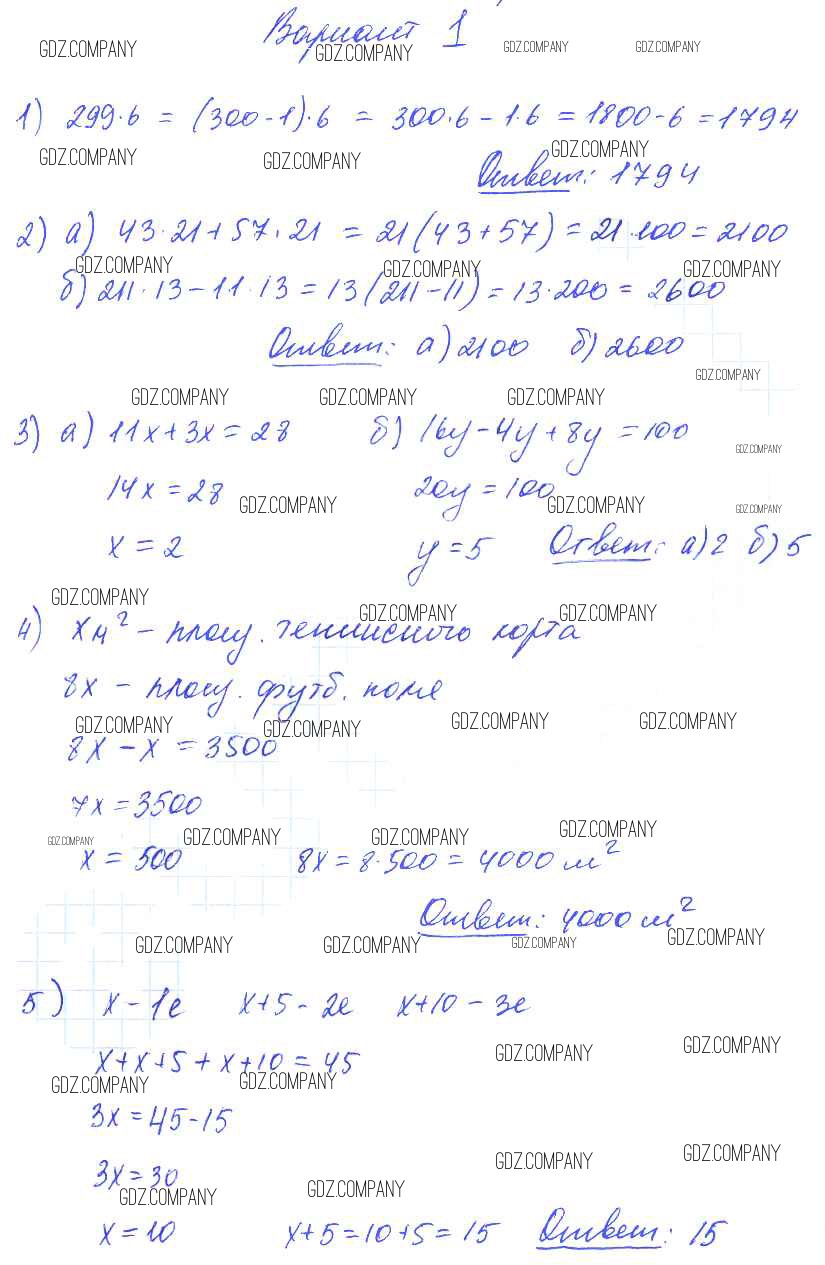 Вариант 1
GDZ.COMPANY GDZ.COMPANY GDZ.COMPANY GDZ.COMPANY
1) 299·6 = (300-1)·6 = 300·6 - 1·6 = 1800-6 = 1794
GDZ.COMPANY GDZ.COMPANY GDZ.COMPANY
Ответ: 1794
2) а) 43·21+57·21 = 21(43+57) = 21·100 = 2100
GDZ.COMPANY GDZ.COMPANY GDZ.COMPANY
б) 211·13-11·13 = 13(211-11) = 13·200 = 2600
Ответ: а) 2100 б) 2600
GDZ.COMPANY
GDZ.COMPANY GDZ.COMPANY GDZ.COMPANY
3) а) 11x+3x=28 б) 16y-4y+8y=100
GDZ.COMPANY
14x=28 20y=100
GDZ.COMPANY GDZ.COMPANY GDZ.COMPANY
x=2 y=5 Ответ: а) 2 б) 5
GDZ.COMPANY GDZ.COMPANY GDZ.COMPANY
4) x м² - площ. теннисного корта
8x - площ. футб. поля
GDZ.COMPANY GDZ.COMPANY GDZ.COMPANY GDZ.COMPANY
8x-x=3500
7x=3500
GDZ.COMPANY GDZ.COMPANY GDZ.COMPANY GDZ.COMPANY
x=500 8x=8·500=4000 м²
Ответ: 4000 м²
GDZ.COMPANY GDZ.COMPANY GDZ.COMPANY GDZ.COMPANY
5) x-1е x+5-2е x+10-3е
GDZ.COMPANY GDZ.COMPANY
x+x+5+x+10=45
GDZ.COMPANY GDZ.COMPANY
3x=45-15
GDZ.COMPANY GDZ.COMPANY
3x=30
GDZ.COMPANY GDZ.COMPANY
x=10 x+5=10+5=15 Ответ: 15